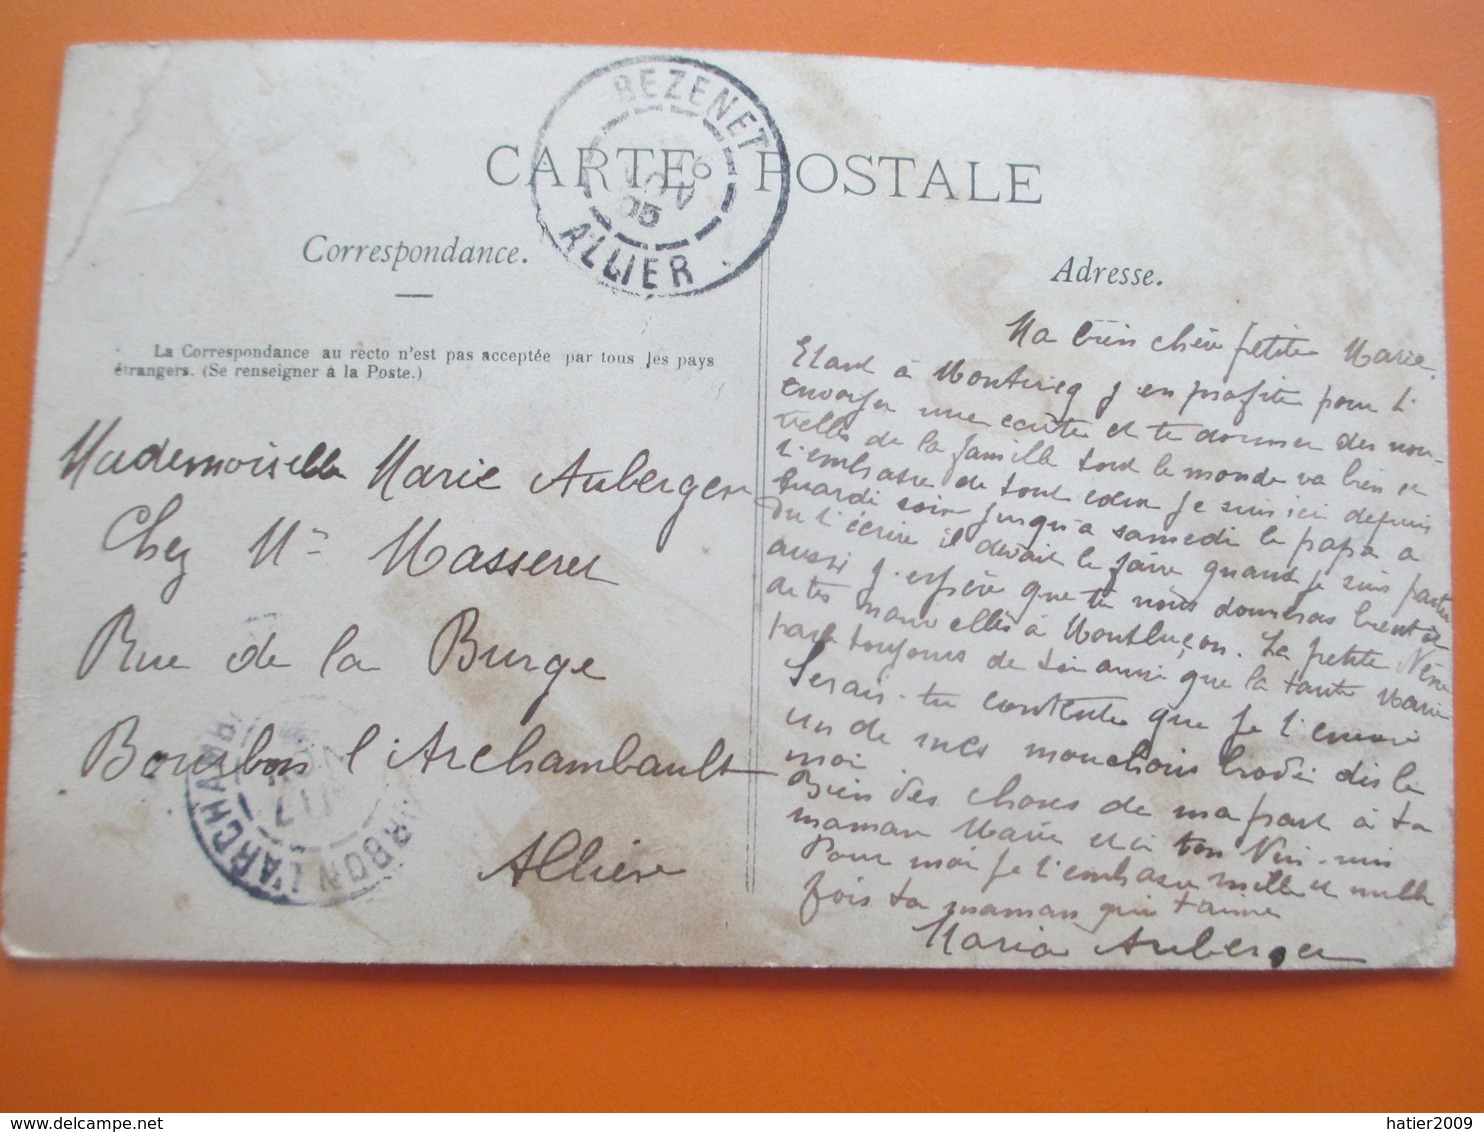 CARTE POSTALE
BEZENET
6
NOV
05
ALLIER
Correspondance.
La Correspondance au recto n'est pas acceptée par tous les pays
étrangers. (Se renseigner à la Poste.)
Mademoiselle Marie Auberger
Chez Mr Masseret
Rue de la Burge
Bourbon l'Archambault
Allier
BOURBON L'ARCHAMB
Adresse.
Ma bien chère petite Marie.
Etant à j'en profite pour t'
envoyer une carte et te donner des nou-
velles de la famille tout le monde va bien et
t'embrasse de tout coeur je suis ici depuis
mardi soir jusqu'à samedi le papa a
du t'écrire il devait le faire quand je suis partie
aussi j'espère que tu nous donneras bientôt
de tes nouvelles à Montluçon. La petite
parle toujours de toi ainsi que la tante Marie
Serais-tu contente que je t'envoie
un de mes mouchoirs brodé dis le
moi
Bien des choses de ma part à ta
maman Marie et à ton
Pour moi je t'embrasse mille et mille
fois ta maman qui t'aime
Maria Auberger
hatier2009